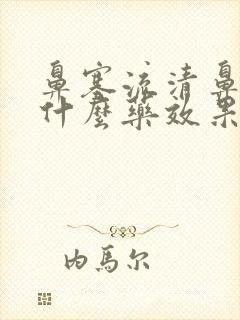 鼻塞流清鼻
什麼藥效果
内馬尔